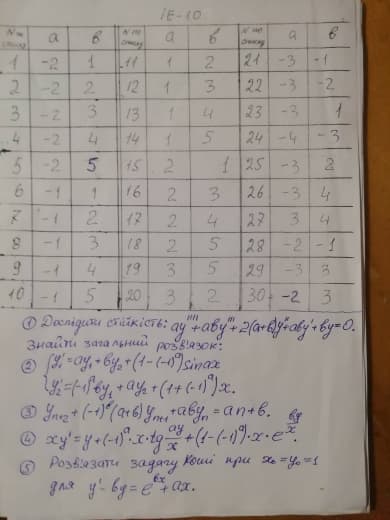 ІЕ-10
№ по списку а в № по списку а в № по списку а в
1 -2 1 11 1 2 21 -3 -1
2 -2 2 12 1 3 22 -3 -2
3 -2 3 13 1 4 23 -3 1
4 -2 4 14 1 5 24 -4 -3
5 -2 5 15 2 1 25 -3 2
6 -1 1 16 2 3 26 -3 4
7 -1 2 17 2 4 27 3 4
8 -1 3 18 2 5 28 -2 -1
9 -1 4 19 3 5 29 -3 3
10 -1 5 20 3 2 30 -2 3
① Дослідити стійкість: ay''''+aby'''+2(a+b)y''+aby'+by=0.
Знайти загальний розв'язок:
② { y₁'=ay₁+by₂+(1-(-1)ᵃ)sinax
y₂'=(-1)ᵃby₁+ay₂+(1+(-1)ᵃ)x.
③ yₙ₊₂+(-1)ᵃ(a+b)yₙ₊₁+abyₙ=an+b.
④ xy'=y+(-1)ᵃ·x·tg ay/x+(1-(-1)ᵃ)·x·e^(by/x).
⑤ Розв'язати задачу Коші при x₀=y₀=1
для y'-by=e^(bx)+ax.